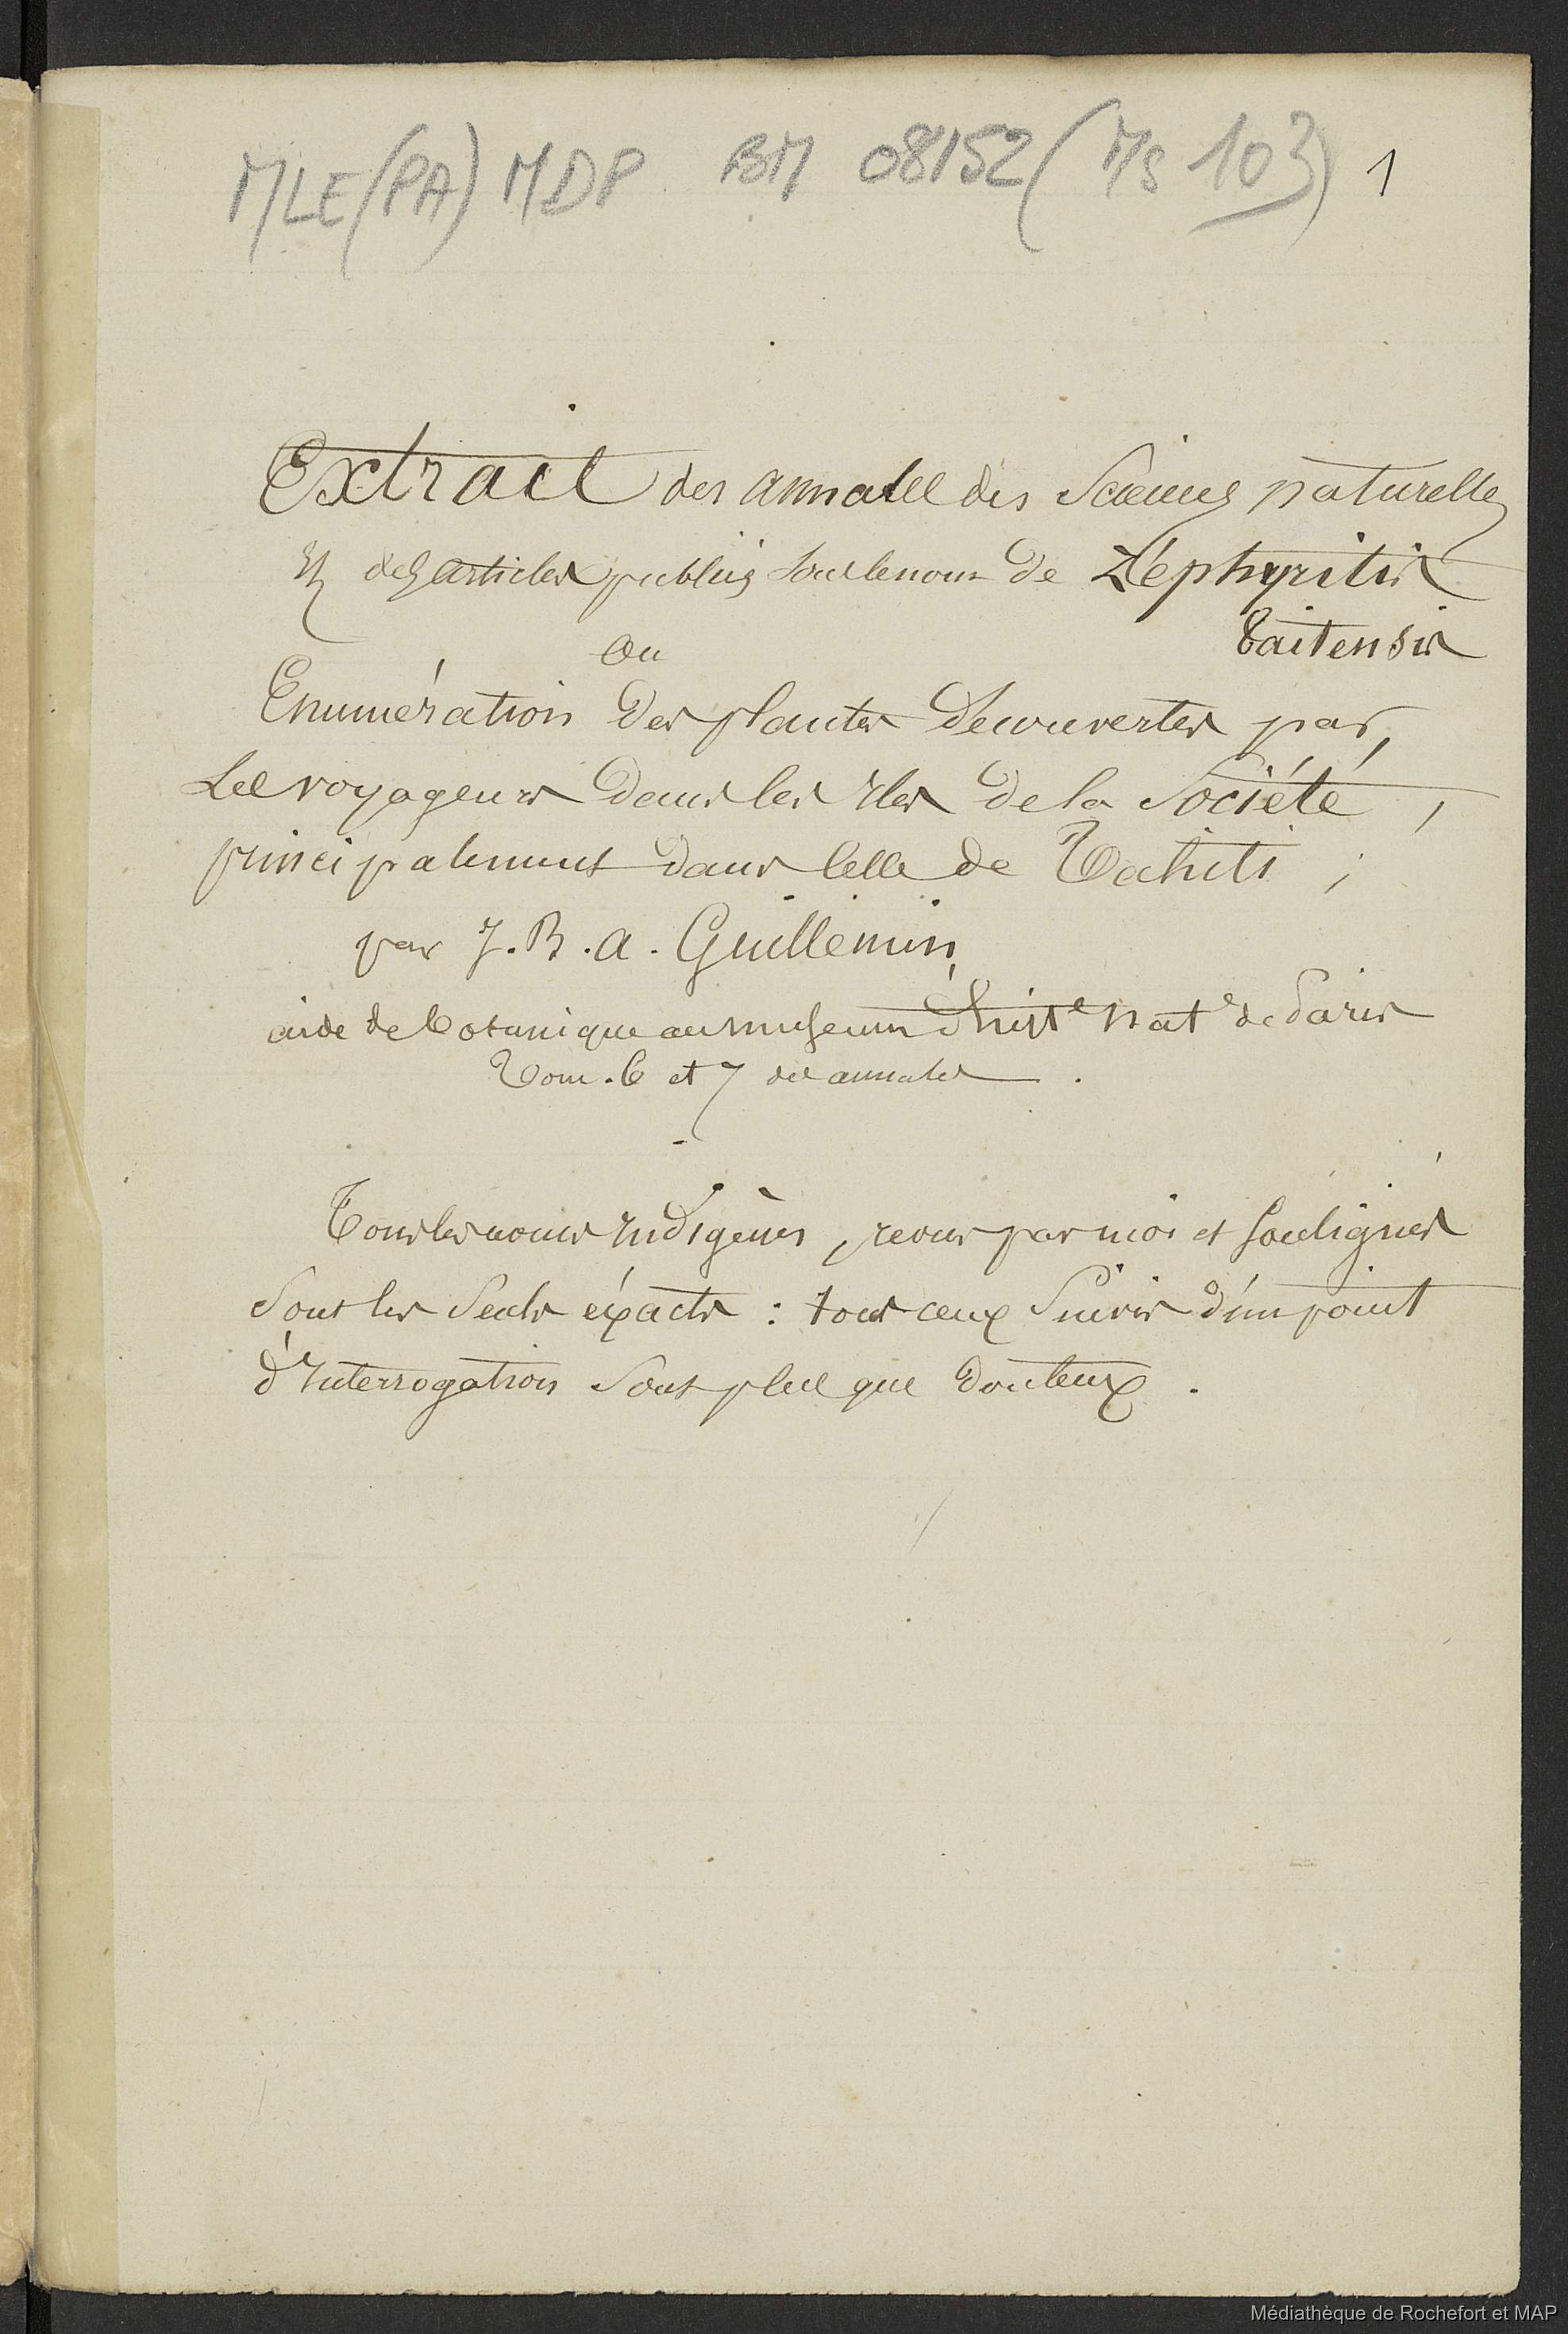 MLE(PA) MDP BM 08152 (Ms 103) 1
Extrait des annales des Sciences naturelles
Et des articles publiés sous le nom de Zéphyritis
taitensis
ou
Enumération des plantes découvertes par
les voyageurs dans les Iles de la Société,
principalement dans celle de Tahiti ;
par J. B. A. Guillemin,
aide de botanique au museum d'histe nate de Paris
Tom. 6 et 7 des annales .
Tous les noms indigènes, revus par moi et soulignés
sont les seuls éxacts : tous ceux suivis d'un point
d'interrogation sont plus que douteux .
Médiathèque de Rochefort et MAP